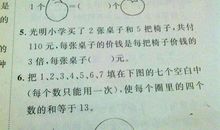 1个○=( )个○
5. 光明小学买了2张桌子和5把椅子,共付
110元,每张桌子的价钱是每把椅子价钱的
3倍,每张桌子( )元。
6. 把1,2,3,4,5,6,7填在下图的七个空白中
(每个数只能用一次),使每个圈里的四个
数的和等于13。